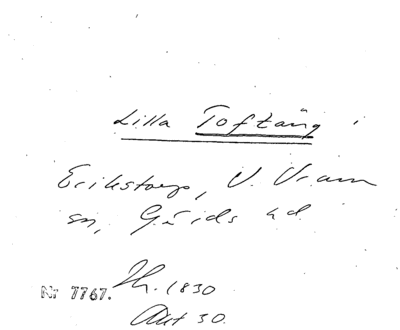 Lilla Toftäng
Erikstorp, V. Vram
sn, Gärds hd
Nr 7767. Th. 1830
Akt 30.